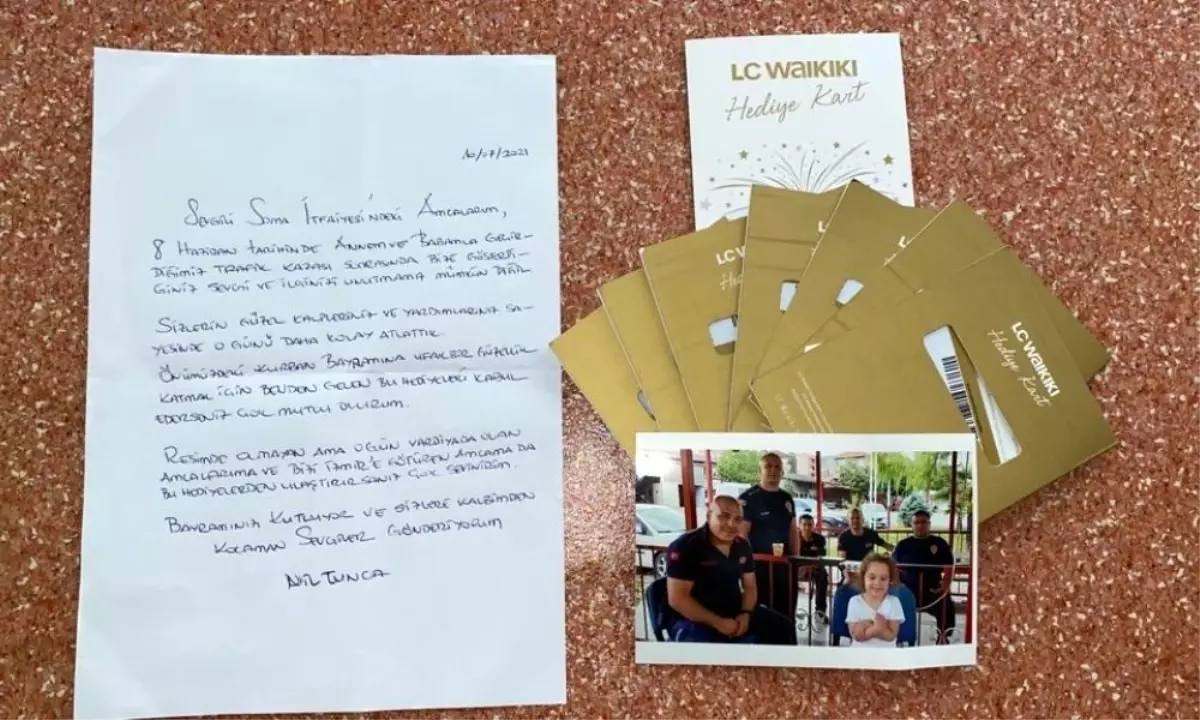 10/07/2021
Sevgili Soma İtfaiyesi'ndeki Amcalarım,
8 Haziran tarihinde Annem ve Babamla geçir-
diğimiz trafik kazası sırasında bize gösterdi-
ğiniz sevgi ve ilginizi unutmama mümkün değil
Sizlerin güzel kalpleriniz ve yardımlarınız sa-
yesinde o günü daha kolay atlattık.
Önümüzdeki Kurban Bayramına ufakbir güzellik
katmak için benden gelen bu hediyeleri kabul
ederseniz çok mutlu olurum.
Resimde olmayan ama o gün vardiyada olan
amcalarıma ve bizi İzmir'e götüren amcama da
bu hediyelerden ulaştırırsanız çok sevinirim.
Bayramınızı kutluyor ve sizlere kalbimden
kocaman sevgiler gönderiyorum
Nil Tunca
LC WAIKIKI
Hediye Kart
LC
He
LC
LC WAIKIKI
Hediye Kart